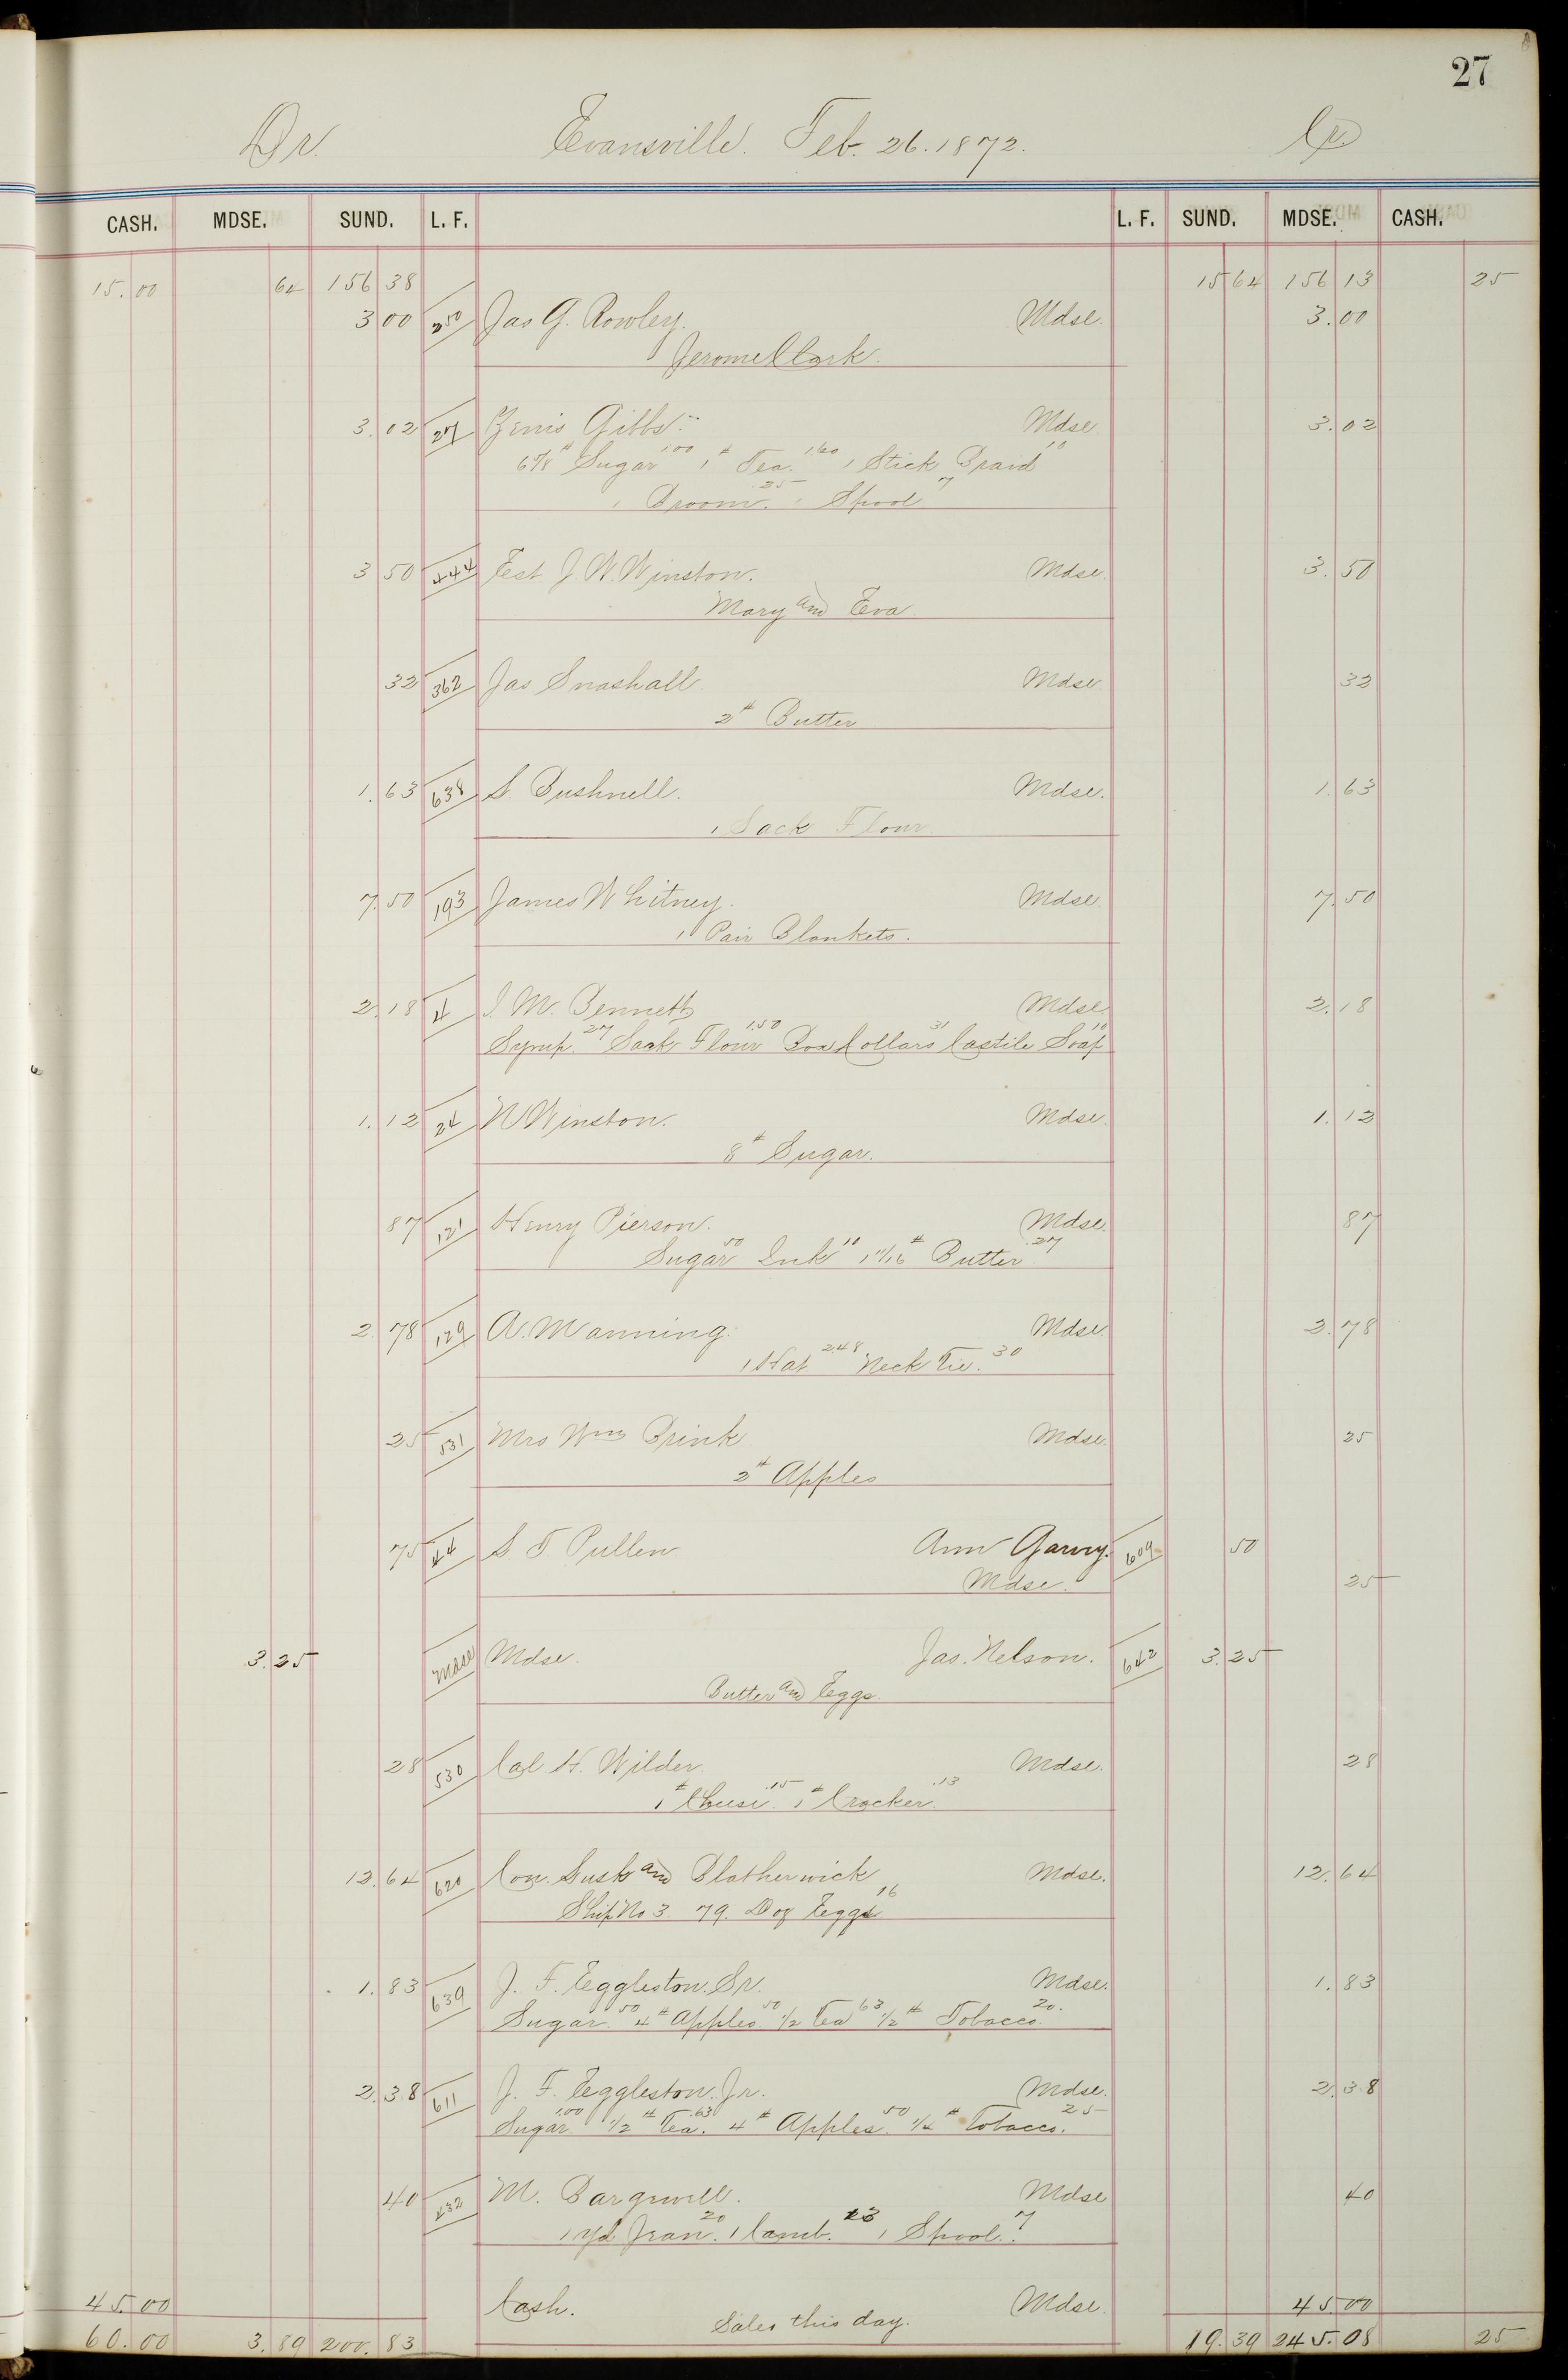 27
Dr. Evansville. Feb. 26. 1872. Cr.
CASH. MDSE. SUND. L. F. L. F. SUND. MDSE. CASH.
15.00 64 156 38 15 64 156 13 25
3 00 250 Jas G. Rowley. Mdse. 3.00
Jerome Clark.
3.02 27 Gibbs. Mdse 3.02
6 7/8 # Sugar 1.00 1 # Tea. 1.60 1 Stick Braid 10
1 Broom. .25 1 Spool 7
3 50 444 Est. J. W. Winston. Mdse. 3.50
Mary and Eva
32 362 Jas Snashall Mdse 32
2 # Butter
1.63 638 S. Bushnell. Mdse. 1.63
1 Sack Flour
7.50 193 James Whitney. Mdse. 7.50
1 Pair Blankets.
2.18 4 I. M. Bennett Mdse. 2.18
Syrup. 27 Sack Flour 1.50 Box Collars 31 Castile Soap 10
1.12 24 N Winston. Mdse. 1.12
8 # Sugar.
87 121 Henry Pierson. Mdse. 87
Sugar 50 Ink 10 1 11/16 # Butter .27
2.78 129 A. Manning. Mdse. 2.78
1 Hat 2.48 Neck Tie. 30
25 531 Mrs Wm Brink Mdse. 25
2 # Apples
75 44 S. T. Pullen Ann Garvy. 609 50
Mdse. 25
3.25 Mdse Mdse. Jas. Nelson. 642 3.25
Butter and Eggs.
28 530 Cal. H. Wilder. Mdse. 28
1 # Cheese .15 1 # Cracker. .13
12.64 620 Con. Lusk and Blatherwick Mdse. 12.64
Ship No 3. 79. Doz Eggs 16
1.83 639 J. F. Eggleston. Sr. Mdse. 1.83
Sugar. 50 4 # Apples. 50 1/2 Tea 63 1/2 # Tobacco. 20.
2.38 611 J. F. Eggleston. Jr. Mdse. 2.38
Sugar. 1.00 1/2 # Tea. .63 4 # Apples. 50 1/4 # Tobacco. 25
40 432 M. Bargewell. Mdse 40
1 yd Jean. 20 1 Comb. 13 1 Spool. 7
45.00 Cash. Mdse. 45.00
Sales this day.
60.00 3.89 200.83 19.39 245.08 25